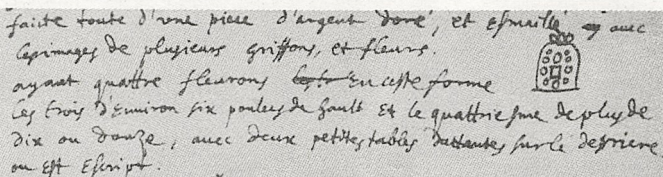 faicte toute d'vne piece d'argent doré, et esmaillé avec
les jmages de plusieurs griffons, et fleurs.
ayant quattre fleurons en ceste forme
les trois d'environ six poulces de hault et le quattriesme de plus de
dix ou douze, avec deux petites tables sur le derriere
ou est escript.